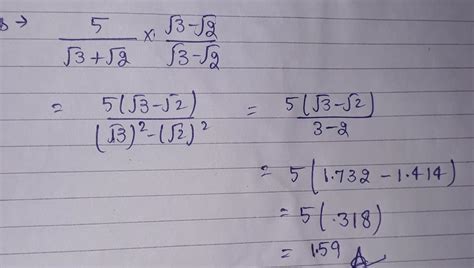 → 5/(√3+√2) × (√3-√2)/(√3-√2)
= 5(√3-√2)/((√3)²-(√2)²) = 5(√3-√2)/(3-2)
= 5(1.732-1.414)
= 5(.318)
= 1.59 A